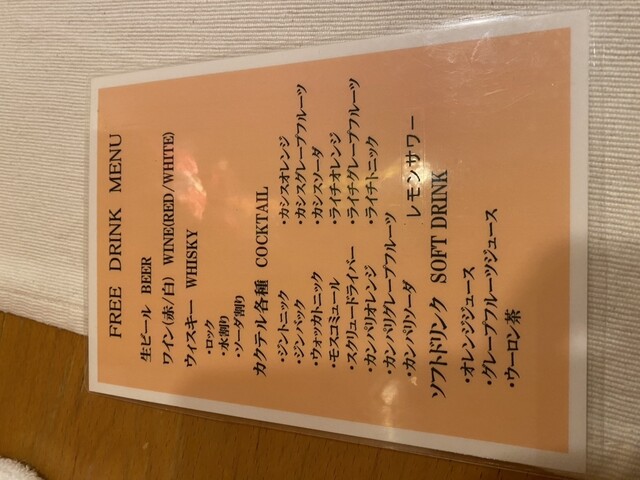 FREE DRINK MENU
生ビール BEER
ワイン(赤/白) WINE(RED/WHITE)
ウィスキー WHISKY
・ロック
・水割り
・ソーダ割り
カクテル各種 COCKTAIL
・ジントニック ・カシスオレンジ
・ジンバック ・カシスグレープフルーツ
・ウォッカトニック ・カシスソーダ
・モスコミュール ・ライチオレンジ
・スクリュードライバー ・ライチグレープフルーツ
・カンパリオレンジ ・ライチトニック
・カンパリグレープフルーツ
・カンパリソーダ レモンサワー
ソフトドリンク SOFT DRINK
・オレンジジュース
・グレープフルーツジュース
・ウーロン茶